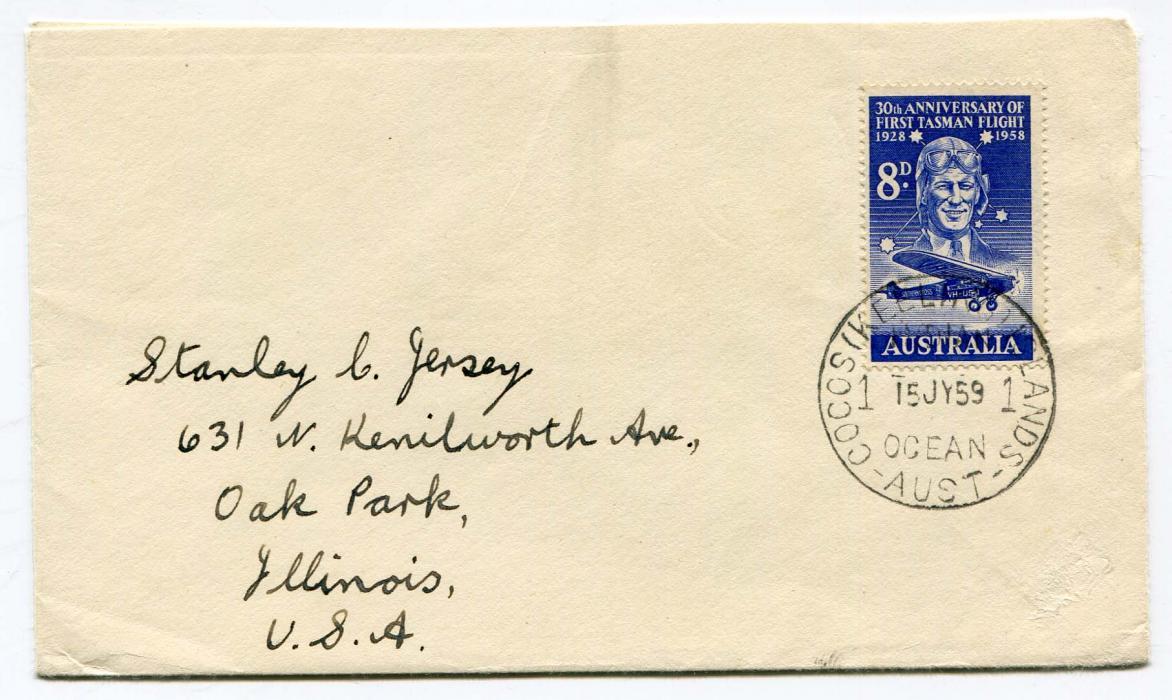 30th ANNIVERSARY OF
FIRST TASMAN FLIGHT
1928 1958
8D.
AUSTRALIA
COCOS (KEELING ISLANDS
1 15JY59 1
OCEAN
- AUST -
Stanley C. Jersey
631 N. Kenilworth Ave.,
Oak Park,
Illinois,
U.S.A.